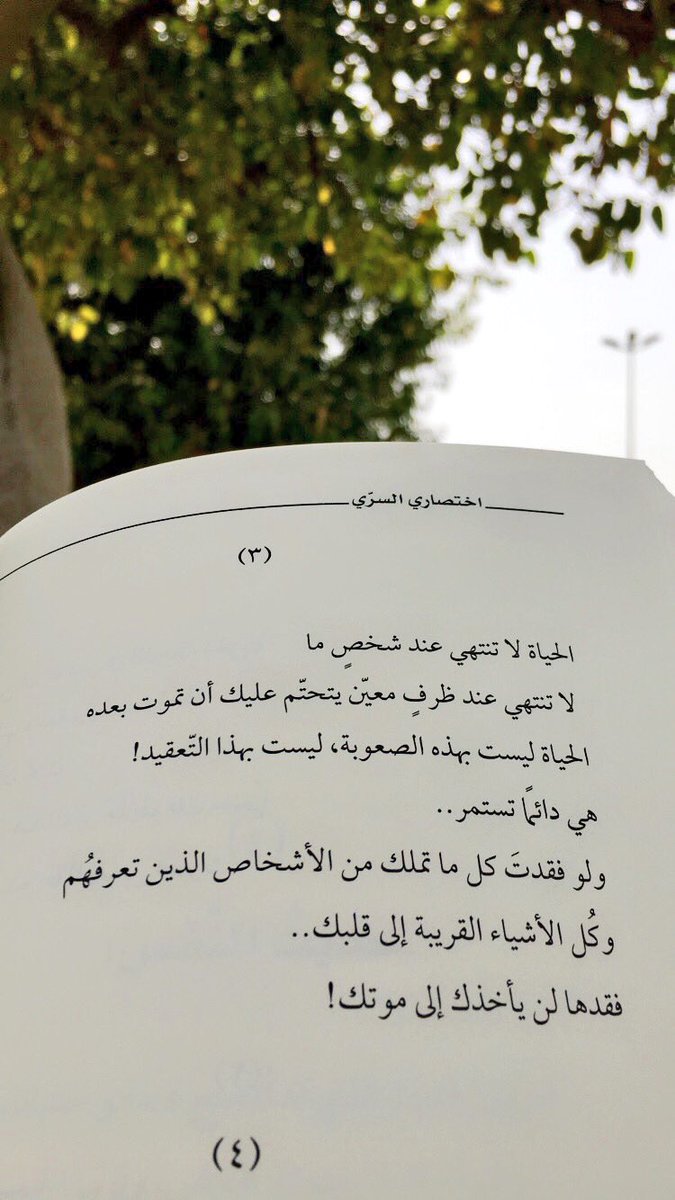 اختصاري السرّي
(٣)
الحياة لا تنتهي عند شخصٍ ما
لا تنتهي عند ظرفٍ معيّن يتحتّم عليك أن تموت بعده
الحياة ليست بهذه الصعوبة، ليست بهذا التّعقيد!
هي دائمًا تستمر..
ولو فقدتَ كل ما تملك من الأشخاص الذين تعرفهُم
وكُل الأشياء القريبة إلى قلبك..
فقدها لن يأخذك إلى موتك!
(٤)